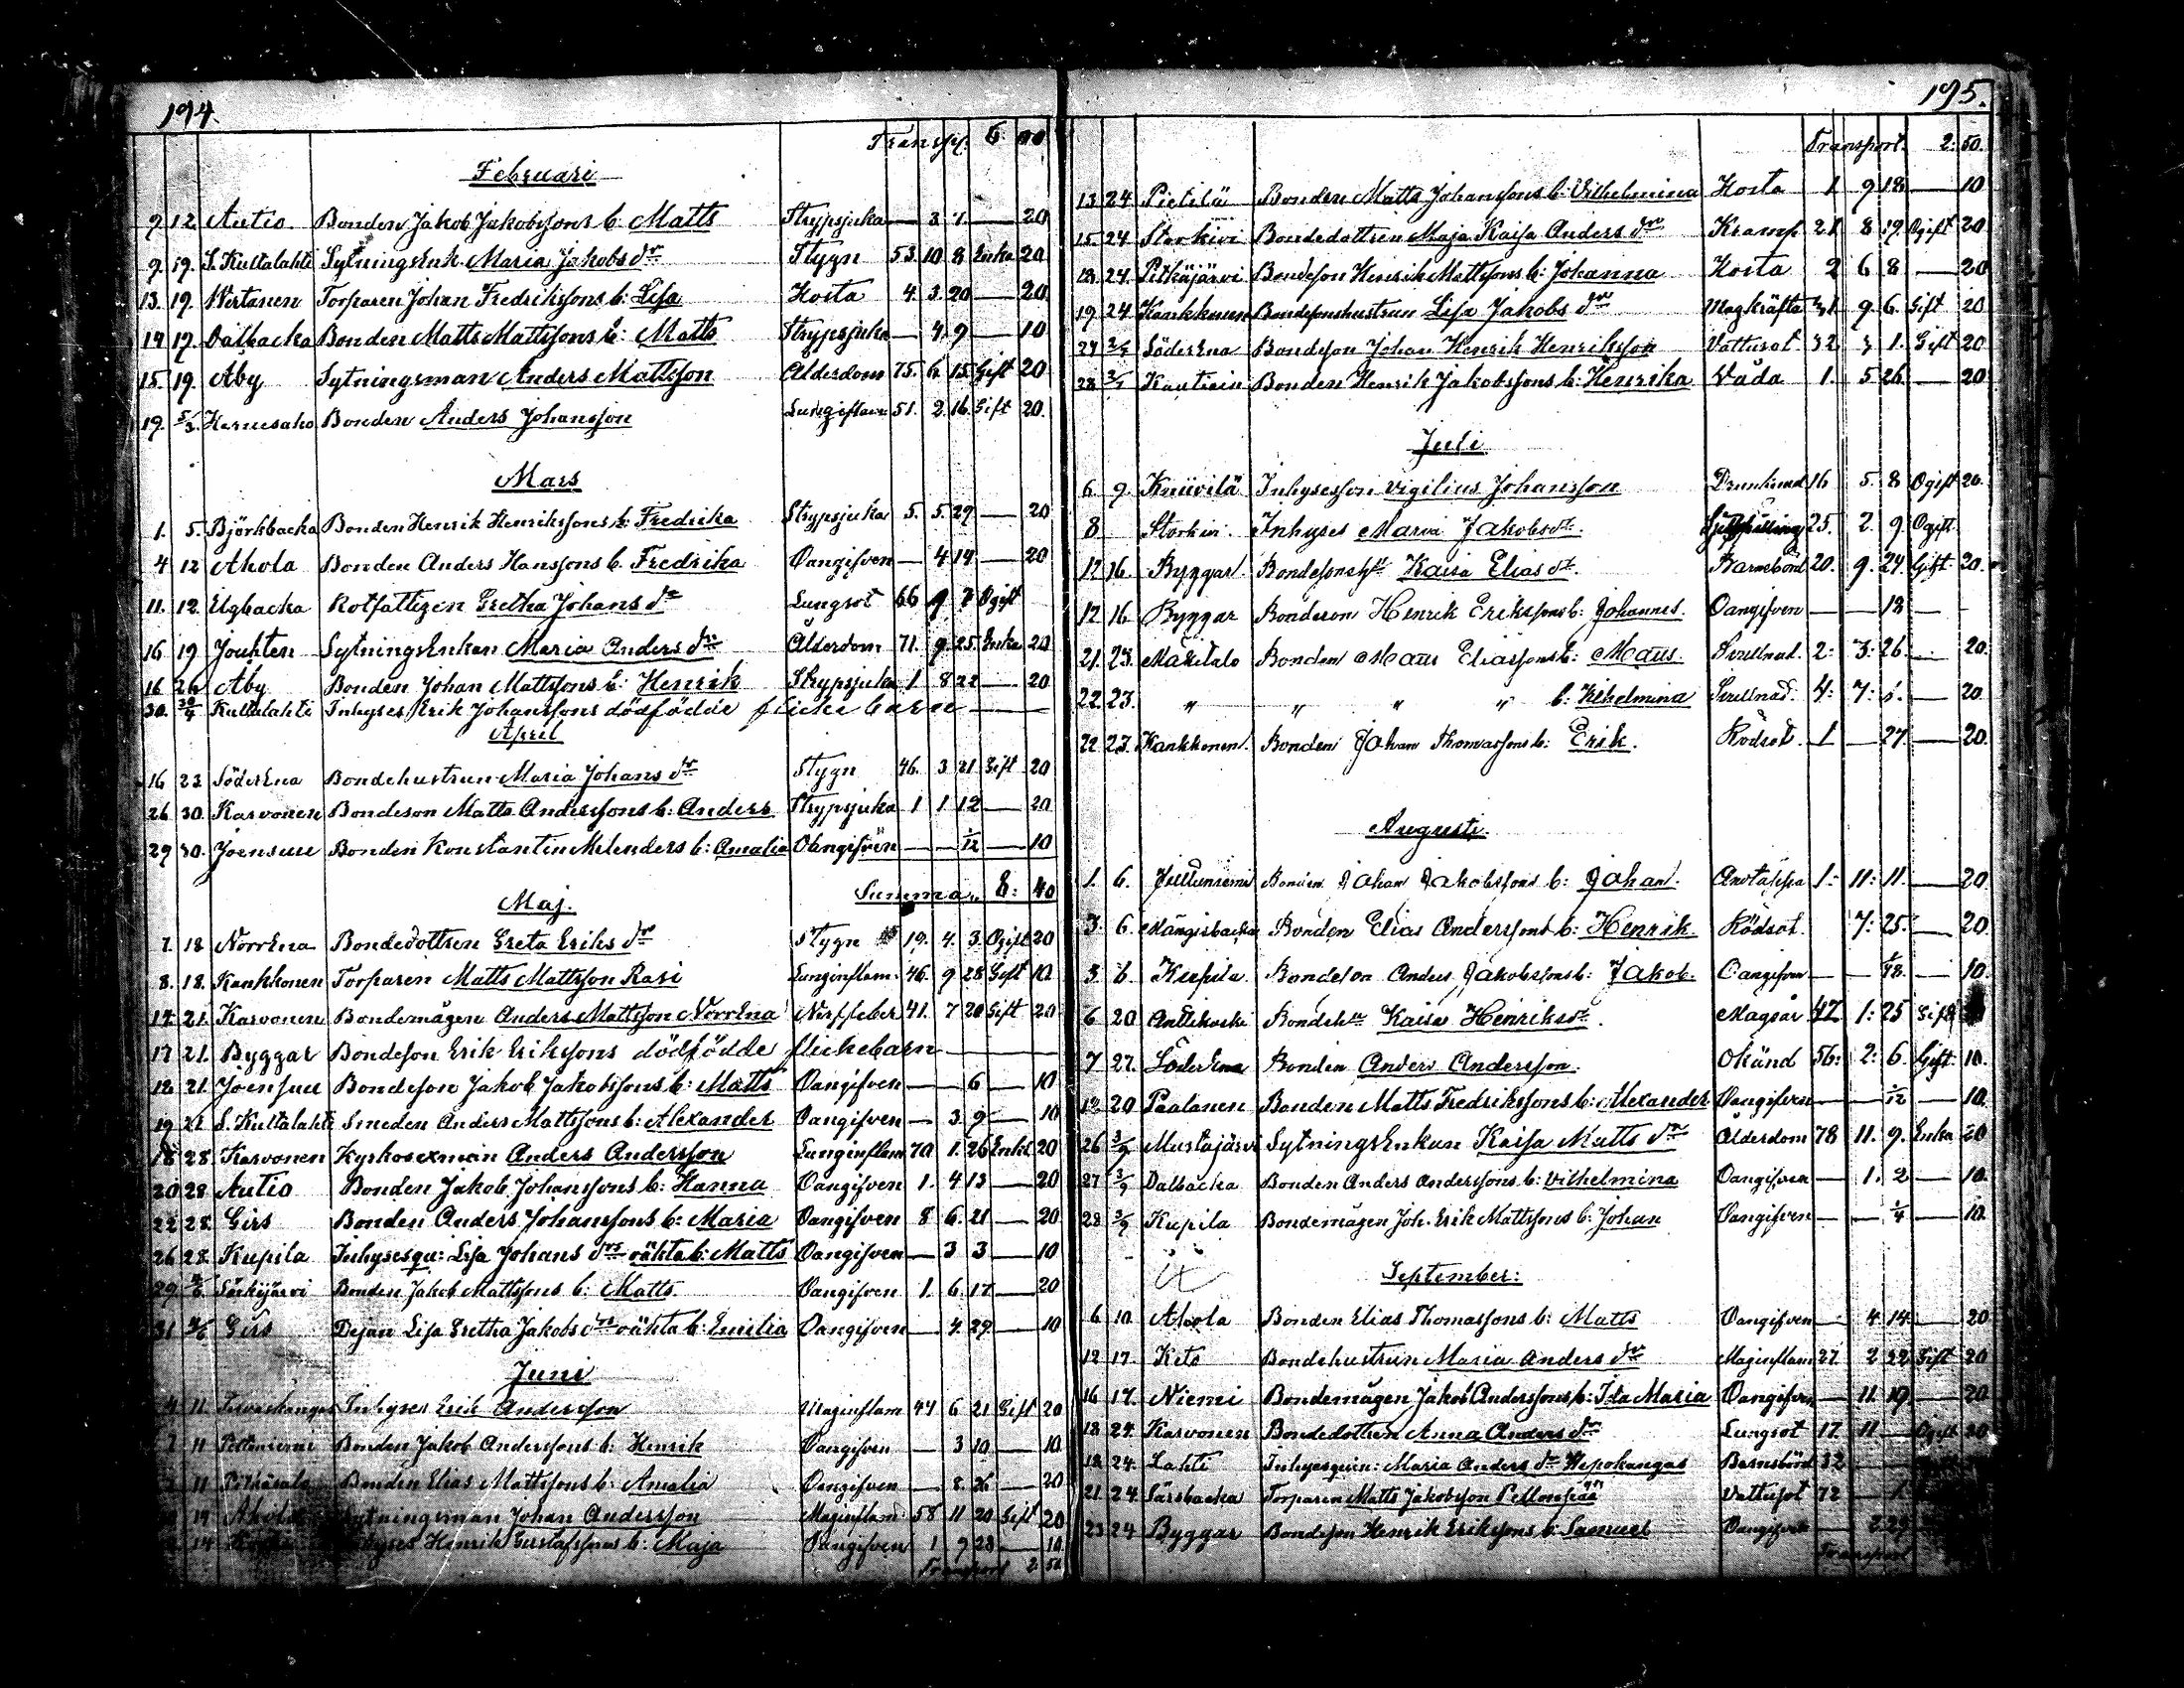 194.
Transp. 6. 00
Februari
9. 12 Autio. Bonden Jakob Jakobssons b. Matts Strypsjuka — 3. 1. — 20
9. 19. S. Kultalahti Sytningsenk. Maria Jakobs dr Stygn 53. 10 8 Enka 20
13. 19. Wirtanen Torparen Johan Fredrikssons b: Lisa Hosta 4. 3. 20 — 20
14 19. Dalbacka Bonden Matts Mattssons b: Matts Strypsjuka — 4. 9 — 10
15. 19. Åby Sytningsman Anders Mattsson Ålderdom 75. 6. 15. Gift 20
19. 5/3. Hernesaho Bonden Anders Johansson Lunginflam 51. 2. 16. Gift 20.
Mars
1. 5. Björkbacka Bonden Henrik Henrikssons b: Fredrika Strypsjuka 5. 5. 29 — 20
4 12 Ahola Bonden Anders Hanssons b. Fredrika Oangifven — 4 14 — 20
11. 12. Elgbacka Rotfattigen Gretha Johans dr Lungsot 66 9 7 Ogift
16 19 Jouhten Sytningsenkan Maria Anders dr Ålderdom 71. 9. 25. Enka 20
16 26 Åby Bonden Johan Mattssons b: Henrik Strypsjuka 1 8 22 — 20
30. 30/4 Kultalahti Inhyses Erik Johanssons dödfödde flickebarn —
April
16 23 Söderena Bondehustrun Maria Johans dr Stygn 46. 3 21 Gift 20
26 30. Karvonen Bondeson Matts Anderssons b: Anders Strypsjuka 1 1 12 — 20
29 30. Joensuu Bonden Konstantin Melenders b: Amalia Oangifven — — 1/12 — 10
Summa 8: 40
Maj.
7. 18 Norrena Bondedottren Greta Eriks dr Stygn 19. 4. 3. Ogift 20
8. 18. Kankkonen Torparen Matts Mattsson Rasi Lunginflam. 46. 9 28 Gift 10
17. 21. Karvonen Bondemågen Anders Mattsson Norrena Nerffeber 41. 7 20 Gift 20
17 21. Byggar Bondeson Erik Erikssons dödfödde flickebarn —
12. 21. Joensuu Bondeson Jakob Jakobssons b: Matts Oangifven — — 6 — 10
19 21 S. Kultalahti Smeden Anders Mattssons b: Alexander Oangifven — 3. 9 — 10
18 28 Karvonen Kyrkosexman Anders Andersson Lunginflam 70 1. 26 Enkl 20
20 28 Autio Bonden Jakob Johanssons b: Hanna Oangifven 1. 4 13 — 20
22 28. Girs Bonden Anders Johanssons b: Maria Oangifven 8 6. 21 — 20
26 28. Kupila Inhysesqu: Lisa Johans drs oäkta b: Matts Oangifven — 3 3 — 10
29. 4/6 Särkijärvi Bonden Jakob Mattssons b: Matts. Oangifven 1. 6. 17 — 20
31 4/6 Girs Dejan Lisa Gretha Jakobs drs oäkta b: Emilia Oangifven — 4. 29. — 10
Juni
4 11 Inhyses Erik Andersson Maginflam 44 6 21 Gift 20
11 Peltoniemi Bonden Jakob Anderssons b: Henrik Oangifven — 3 10 — 10
11 Pitkäsalo Bonden Elias Mattssons b: Amalia Oangifven — 8. 26 — 20
14 Ahola Sytningsman Johan Andersson Maginflam 58 11 20 Gift 20
14 Inhyses Henrik Gustafssons b: Maja Oangifven 1 9 28 — 10
Transport 2 50
195.
Transport. 2: 50.
13 24 Pietilä Bonden Matts Johanssons b: Vilhelmina Hosta 1 9 18 — 10
15. 24 Storkivi Bondedottren Maja Kaisa Anders dr Kramp 21 8 19. Ogift 20
18. 24. Pitkäjärvi Bondeson Henrik Mattssons b: Johanna Hosta 2 6 8 — 20
19 24. Kankkonen Bondesonshustrun Lisa Jakobs dr Magkräfta 31 9. 6. Gift 20
27 2/7 Söderena Bondeson Johan Henrik Henriksson Vattusot 32 3 1. Gift 20
28. 2/7 Kautiain Bonden Henrik Jakobssons b: Henrika Våda 1. 5 26. — 20
Juli
6. 9. Knuvilä Inhysesson Vigilius Johansson Drunknad 16 5. 8 Ogift 20.
8 Storkivi. Inhyses Maria Jakobsdr. 25. 2. 9. Ogift
12 16. Byggar Bondesonshu Kaisa Elias dr. Barnsbörd 20. 9. 24. Gift 20.
12 16. Byggar Bondeson Henrik Erikssons b: Johannes. Oangifven — — 18 —
21. 23. Mäkitalo Bonden Matts Eliassons b: Matts. Svullnad. 2: 3: 26. — 20.
22 23. " " " " b: Vilhelmina Svullnad. 4: 7: 1. — 20
22 23. Kankkonen. Bonden Johan Thomassons b: Erik. Rödsot. 1 — 27. — 20.
Augusti.
1. 6. Bonden Johan Jakobssons b: Johan. Andtäppa 1: 11: 11. — 20.
3. 6. Mångisbacka Bonden Elias Anderssons b: Henrik. Rödsot. 7: 25. — 20.
3 6. Kupila Bondeson Anders Jakobssons b: Jakob. Oangifven — — 1/18. — 10.
6 20 Anttikoski Bondehu Kaisa Henriksdr. Magsår 42. 1: 25 Gift
7 27. Söderena Bonden Anders Andersson. Okänd 56: 2: 6. Gift 10.
12 20 Paalanen Bonden Matts Fredrikssons b: Alexander Oangifven — — 1/12 — 10.
26 3/9 Mustajärvi Sytningsenkan Kaisa Matts dr Ålderdom 78 11. 9. Enka 20
27 3/9 Dalbacka Bonden Anders Anderssons b: Vilhelmina Oangifven — 1. 2 — 10.
28 3/9 Kupila Bondemågen Joh. Erik Mattssons b: Johan Oangifven — — 1/4 — 10
September:
6 10. Ahola Bonden Elias Thomassons b: Matts Oangifven — 4 14. — 20.
12 17. Keto Bondehustrun Maria Anders dr Maginflam 27 2 22 Gift 20
16 17. Niemi Bondemågen Jakob Anderssons b: Ida Maria Oangifven — 11. 19 — 20
18 24. Karvonen Bondedottren Anna Anders dr Lungsot 17. 11. — Ogift 20
18. 24. Lahti Inhysesqvin: Maria Anders dr Hepokangas Barnsbörd 32
21 24. Särsbacka Torparen Matts Jakobsson Pellonpää Vattusot 72
23 24 Byggar Bondeson Henrik Erikssons b: Samuel Oangifven
Transport